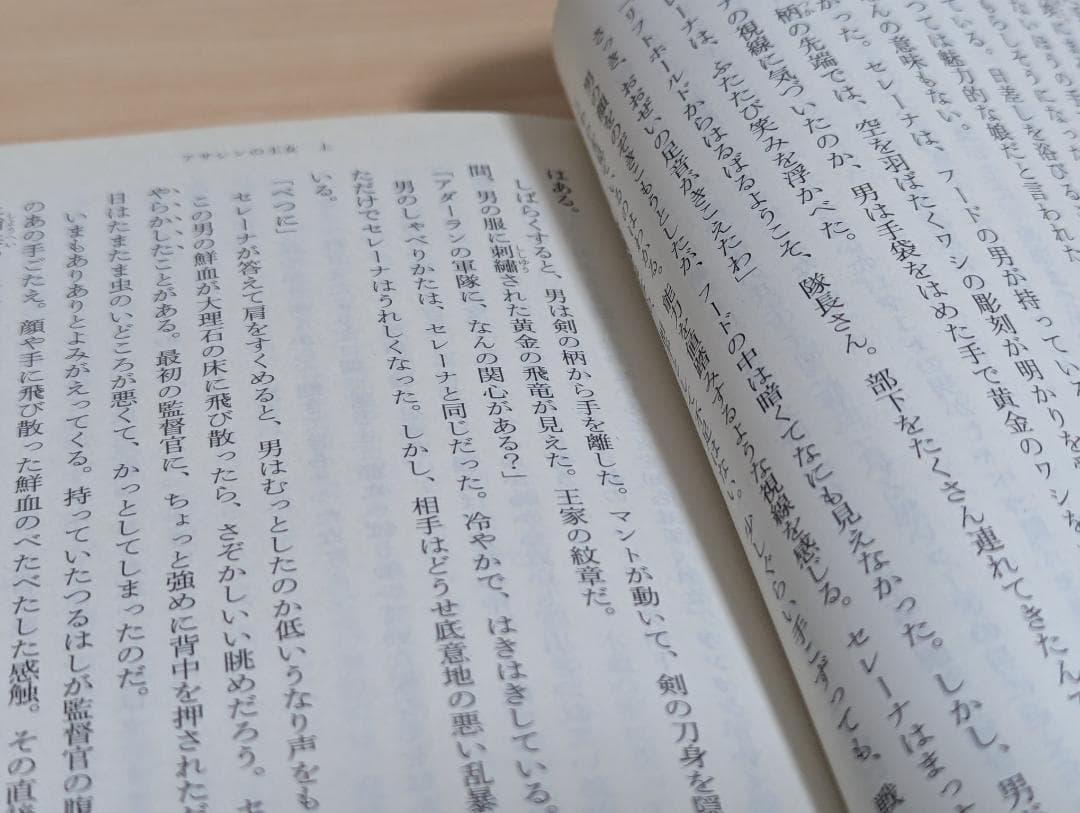 もらしそうになった
ている。日差しを浴びる
っては魅力的な娘だと言われた
んの意味もない。
った。セレーナは、フードの男が持っている
柄の先端では、空を羽ばたくワシの彫刻が明かりを
ナの視線に気づいたのか、男は手袋をはめた手で黄金のワシを
レーナは、ふたたび笑みを浮かべた。
「リフトホールドからはるばるようこそ、隊長さん。部下をたくさん連れてきたんで
さっき、おおぜいの足音がきこえたわ」
男の顔をのぞきこもうとしたが、フードの中は暗くてなにも見えなかった。しかし、男が
能力を値踏みするような視線を感じる。セレーナはまっ
少しぐらい手こずっても、戦
アサシンの王女　上
はある。
しばらくすると、男は剣の柄から手を離した。マントが動いて、剣の刀身を
間、男の服に刺繡された黄金の飛竜が見えた。王家の紋章だ。
「アダーランの軍隊に、なんの関心がある？」
男のしゃべりかたは、セレーナと同じだった。冷ややかで、はきはきしている。
ただけでセレーナはうれしくなった。しかし、相手はどうせ底意地の悪い乱暴
いる。
「べつに」
セレーナが答えて肩をすくめると、男はむっとしたのか低いうなり声をも
この男の鮮血が大理石の床に飛び散ったら、さぞかしいい眺めだろう。セ
やらかしたことがある。最初の監督官に、ちょっと強めに背中を押されただ
日はたまたま虫のいどころが悪くて、かっとしてしまったのだ。
いまもありありとよみがえってくる。持っていたつるはしが監督官の腹
のあの手ごたえ。顔や手に飛び散った鮮血のべたべたした感触。その直